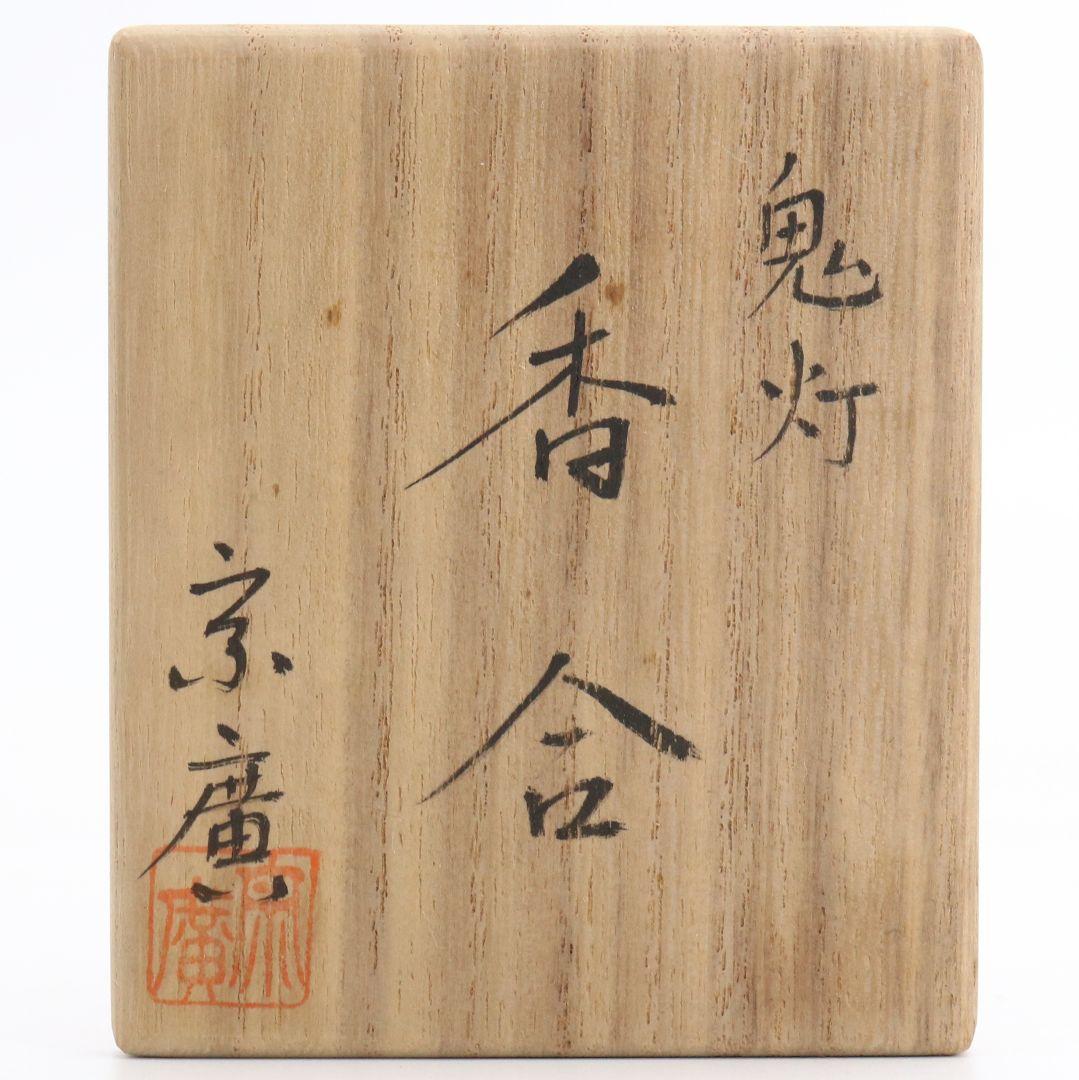 鬼灯
香合
宗廣
宗廣